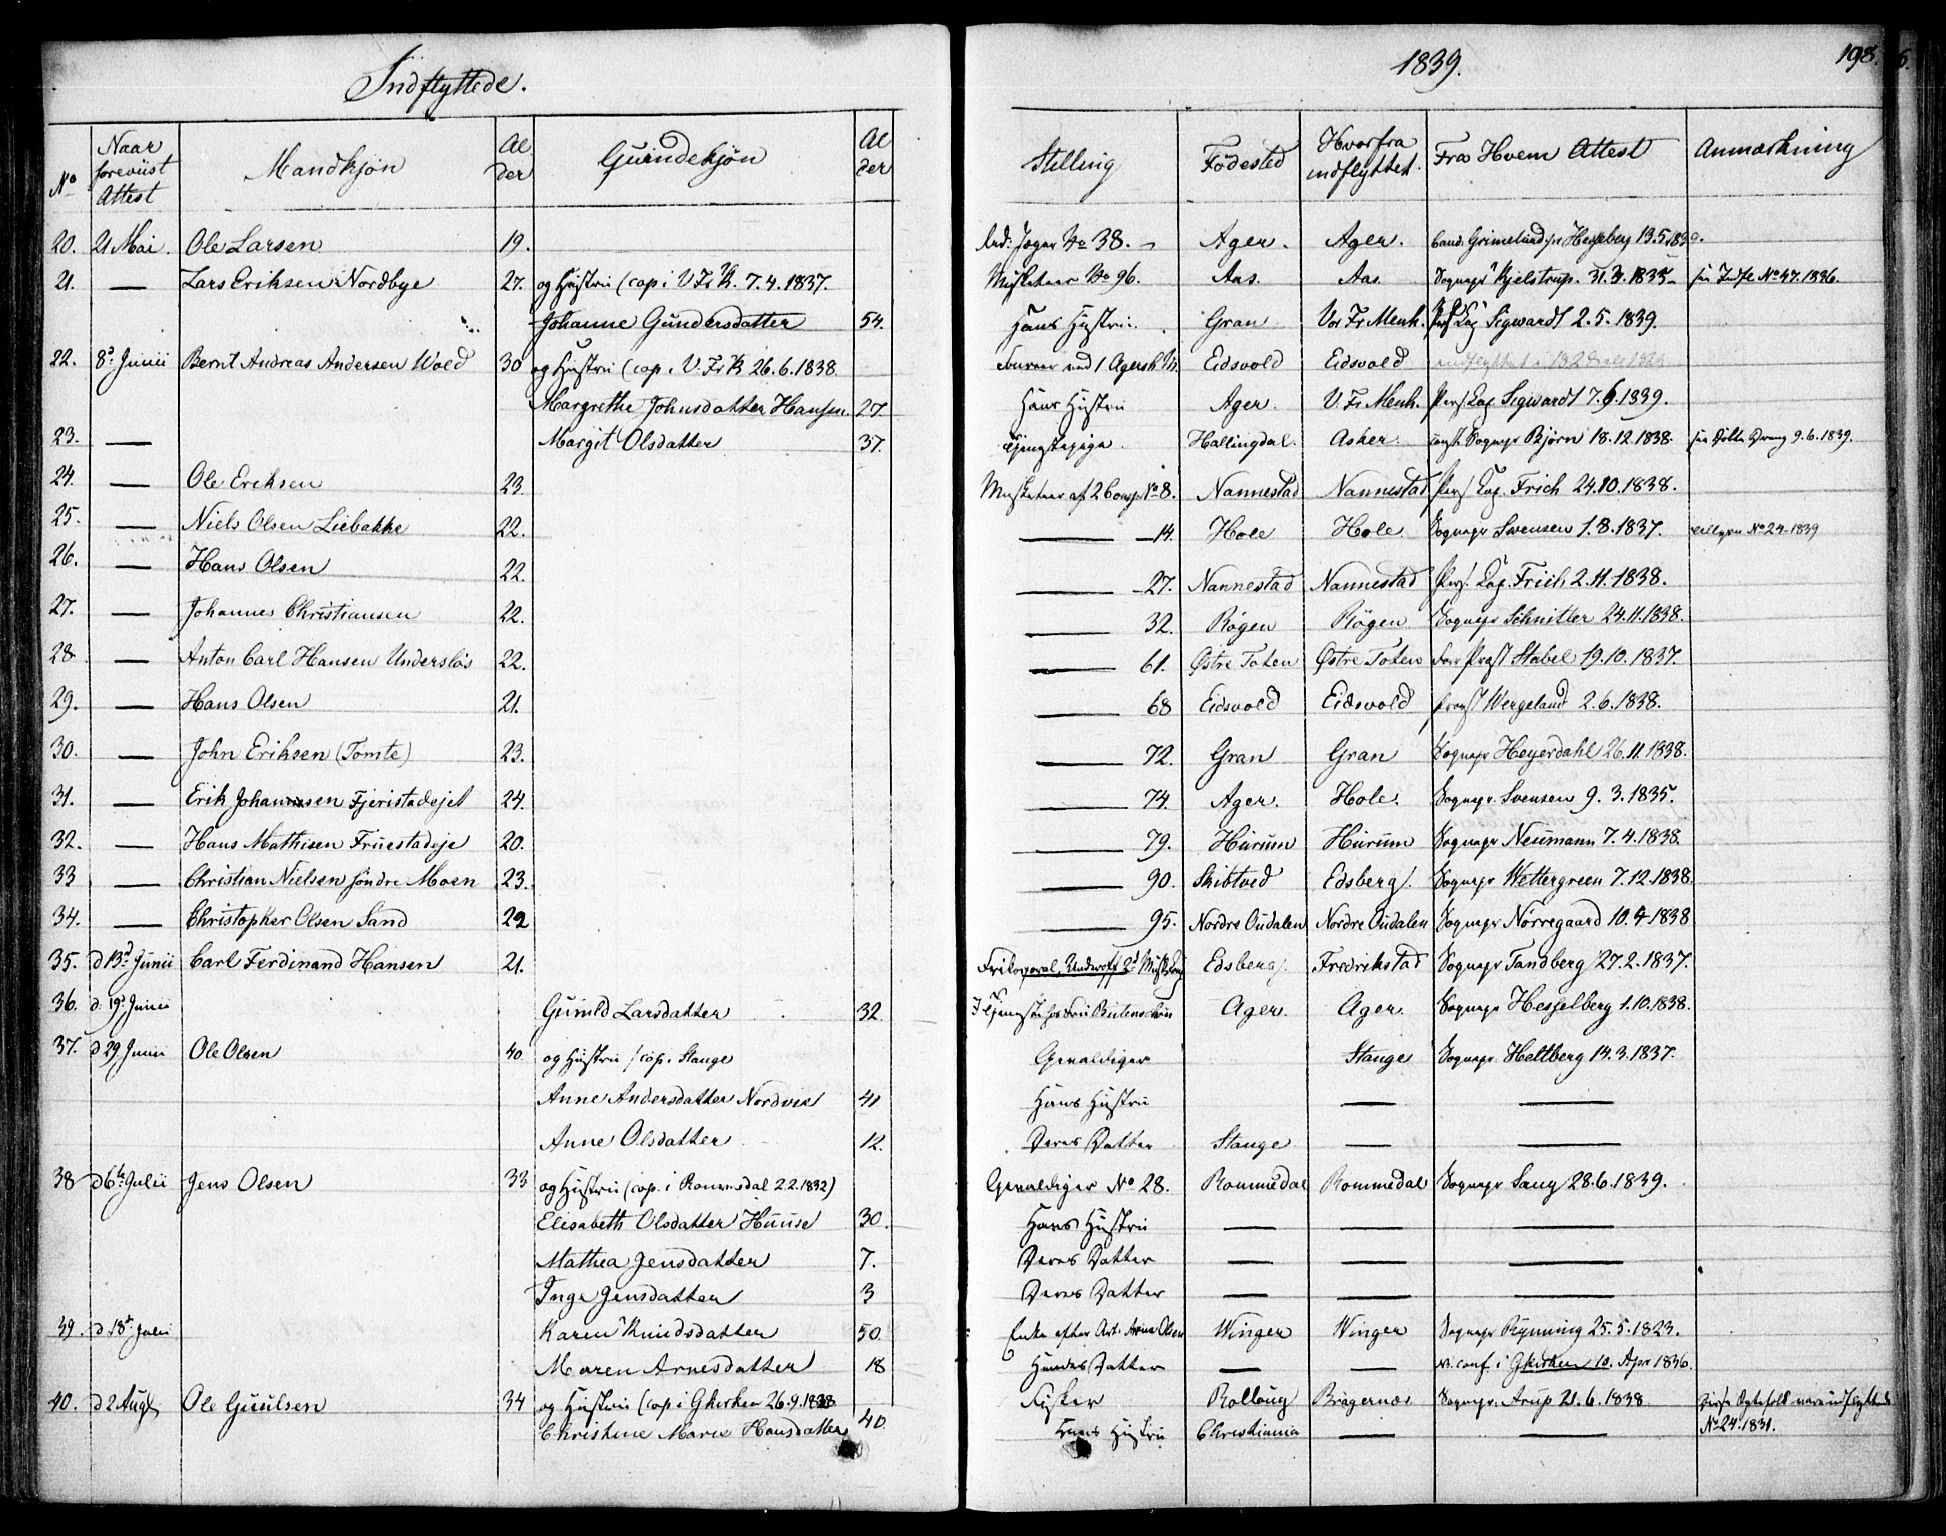 Indflyttede.
1839.
198.
No Naar foreviist Attest Mandkjøn Alder Qvindekjøn Alder Stilling Fødested Hvorfra indflyttet. Fra Hvem Attest Anmærkning
20. 21 Mai. Ole Larsen 19. Jæger No 38. Ager. Ager. Grimelund Hesselberg 13.5.
21. — Lars Eriksen Nordbye 27. og Hustru (cop. i V. Fr. K. 7.4.1837. Musketeer No 96. Aas. Aas. Sognepr Kjelstrup. 31.3.1835 No 47.1836.
Johanne Gundersdatter 54. Hans Hustru. Gran Vor Fr Menh. Pers Cap Sigwardt 2.5.1839.
22. 8d Junii Bernt Andreas Andersen Wold 30 og Hustru (cop. i V. Fr K 26.6.1838. Foureer ved 1 Agersh. Eidsvold Eidsvold indflyttet i 1828
Margrethe Johnsdatter Hansen 27. Hans Hustru Ager. V. Fr Menh. Pers Cap Sigwardt 7.6.1839.
23. — Margit Olsdatter 37. Tjenestepige. Hallingdal. Asker. const. Sognepr Bjørn 18.12.1838. 9.6.1839.
24. — Ole Eriksen 23. Musketeer af 2 Comp. No 8. Nannestad Nannestad Pers. Cap. Frich 24.10.1838.
25. — Niels Olsen Liebakke 22. — 14. Hole Hole Sognepr Svensen 1.8.1837. No 24-1839
26. — Hans Olsen 22. — 27. Nannestad Nannestad Pers. Cap. Frich 2.11.1838.
27. — Johannes Christiansen 22. — 32. Røgen Røgen Sognepr Schnitler 24.11.1838.
28 — Anton Carl Hansen Undersløs 22. — 61. Østre Toten Østre Toten Provst Stabel 19.10.1837.
29. — Hans Olsen 21. — 68 Eidsvold Eidsvold Provst Wergeland 2.6.1838.
30. — John Eriksen (Tomte) 23. — 72. Gran Gran Sognepr Heyerdahl 26.11.1838.
31. — Erik Johannsen Fjeristadejet 24. — 74. Ager. Hole. Sognepr. Svensen 9.3.1835.
32. — Hans Mathisen Fruestadeje 20. — 79. Hurum Hurum Sognepr Neumann 7.4.1838.
33 — Christian Nielsen søndre Moen 23. — 90. Skibtved Edsberg. Sognepr Wettergreen 7.12.1838.
34. — Christopher Olsen Sand 22 — 95. Nordre Oudalen Nordre Oudalen Sognepr Nørregaard 10.4.1838
35. d 13d Junii Carl Ferdinand Hansen 21. Frikorporal, Edsberg. Fredrikstad Sognepr Tandberg 27.2.1837.
36. d. 19d Junii Gunild Larsdatter 32. I Tjeneste hos Ager. Ager. Sognepr Hesselberg 1.10.1838.
37. d 29 Junii Ole Olsen 40. og Hustru (cop. Stange Gevaldiger Stange Sognepr. Heltberg 14.3.1837.
Anne Andersdatter Nordvie 41 Hans Hustru — —
Anne Olsdatter 12. Deres Datter Stange — —
38 d 6te Julii Jens Olsen 33 og Hustru (cop. i Rommedal 2.2.1832) Gevaldiger No 28. Rommedal Rommedal Sognepr Sang 28.6.1839.
Elisabeth Olsdatter Huuse 30. Hans Hustru — — —
Mathea Jensdatter 7. Deres Datter — — —
Inge Jensdatter 3 Deres Datter — — —
39. d. 18d Julii Karen Knudsdatter 50. Enke efter Art. Arne Olsen Winger Winger Sognepr Rynning 25.5.1823.
Maren Arnesdatter 18 Hendes Datter — — conf. i Gkirken 10. Apr 1836.
40. d 2 Augt Ole Guulsen 34 og Hustru (cop i Gkirken 26.9.1838 Fisker Rolloug Bragernæs Sognepr. Arup 21.6.1838. Disse Ægtefolk indflyttede
Christine Marie Hansdatter 40. Hans Hustru Christiania — — No 24.1831.